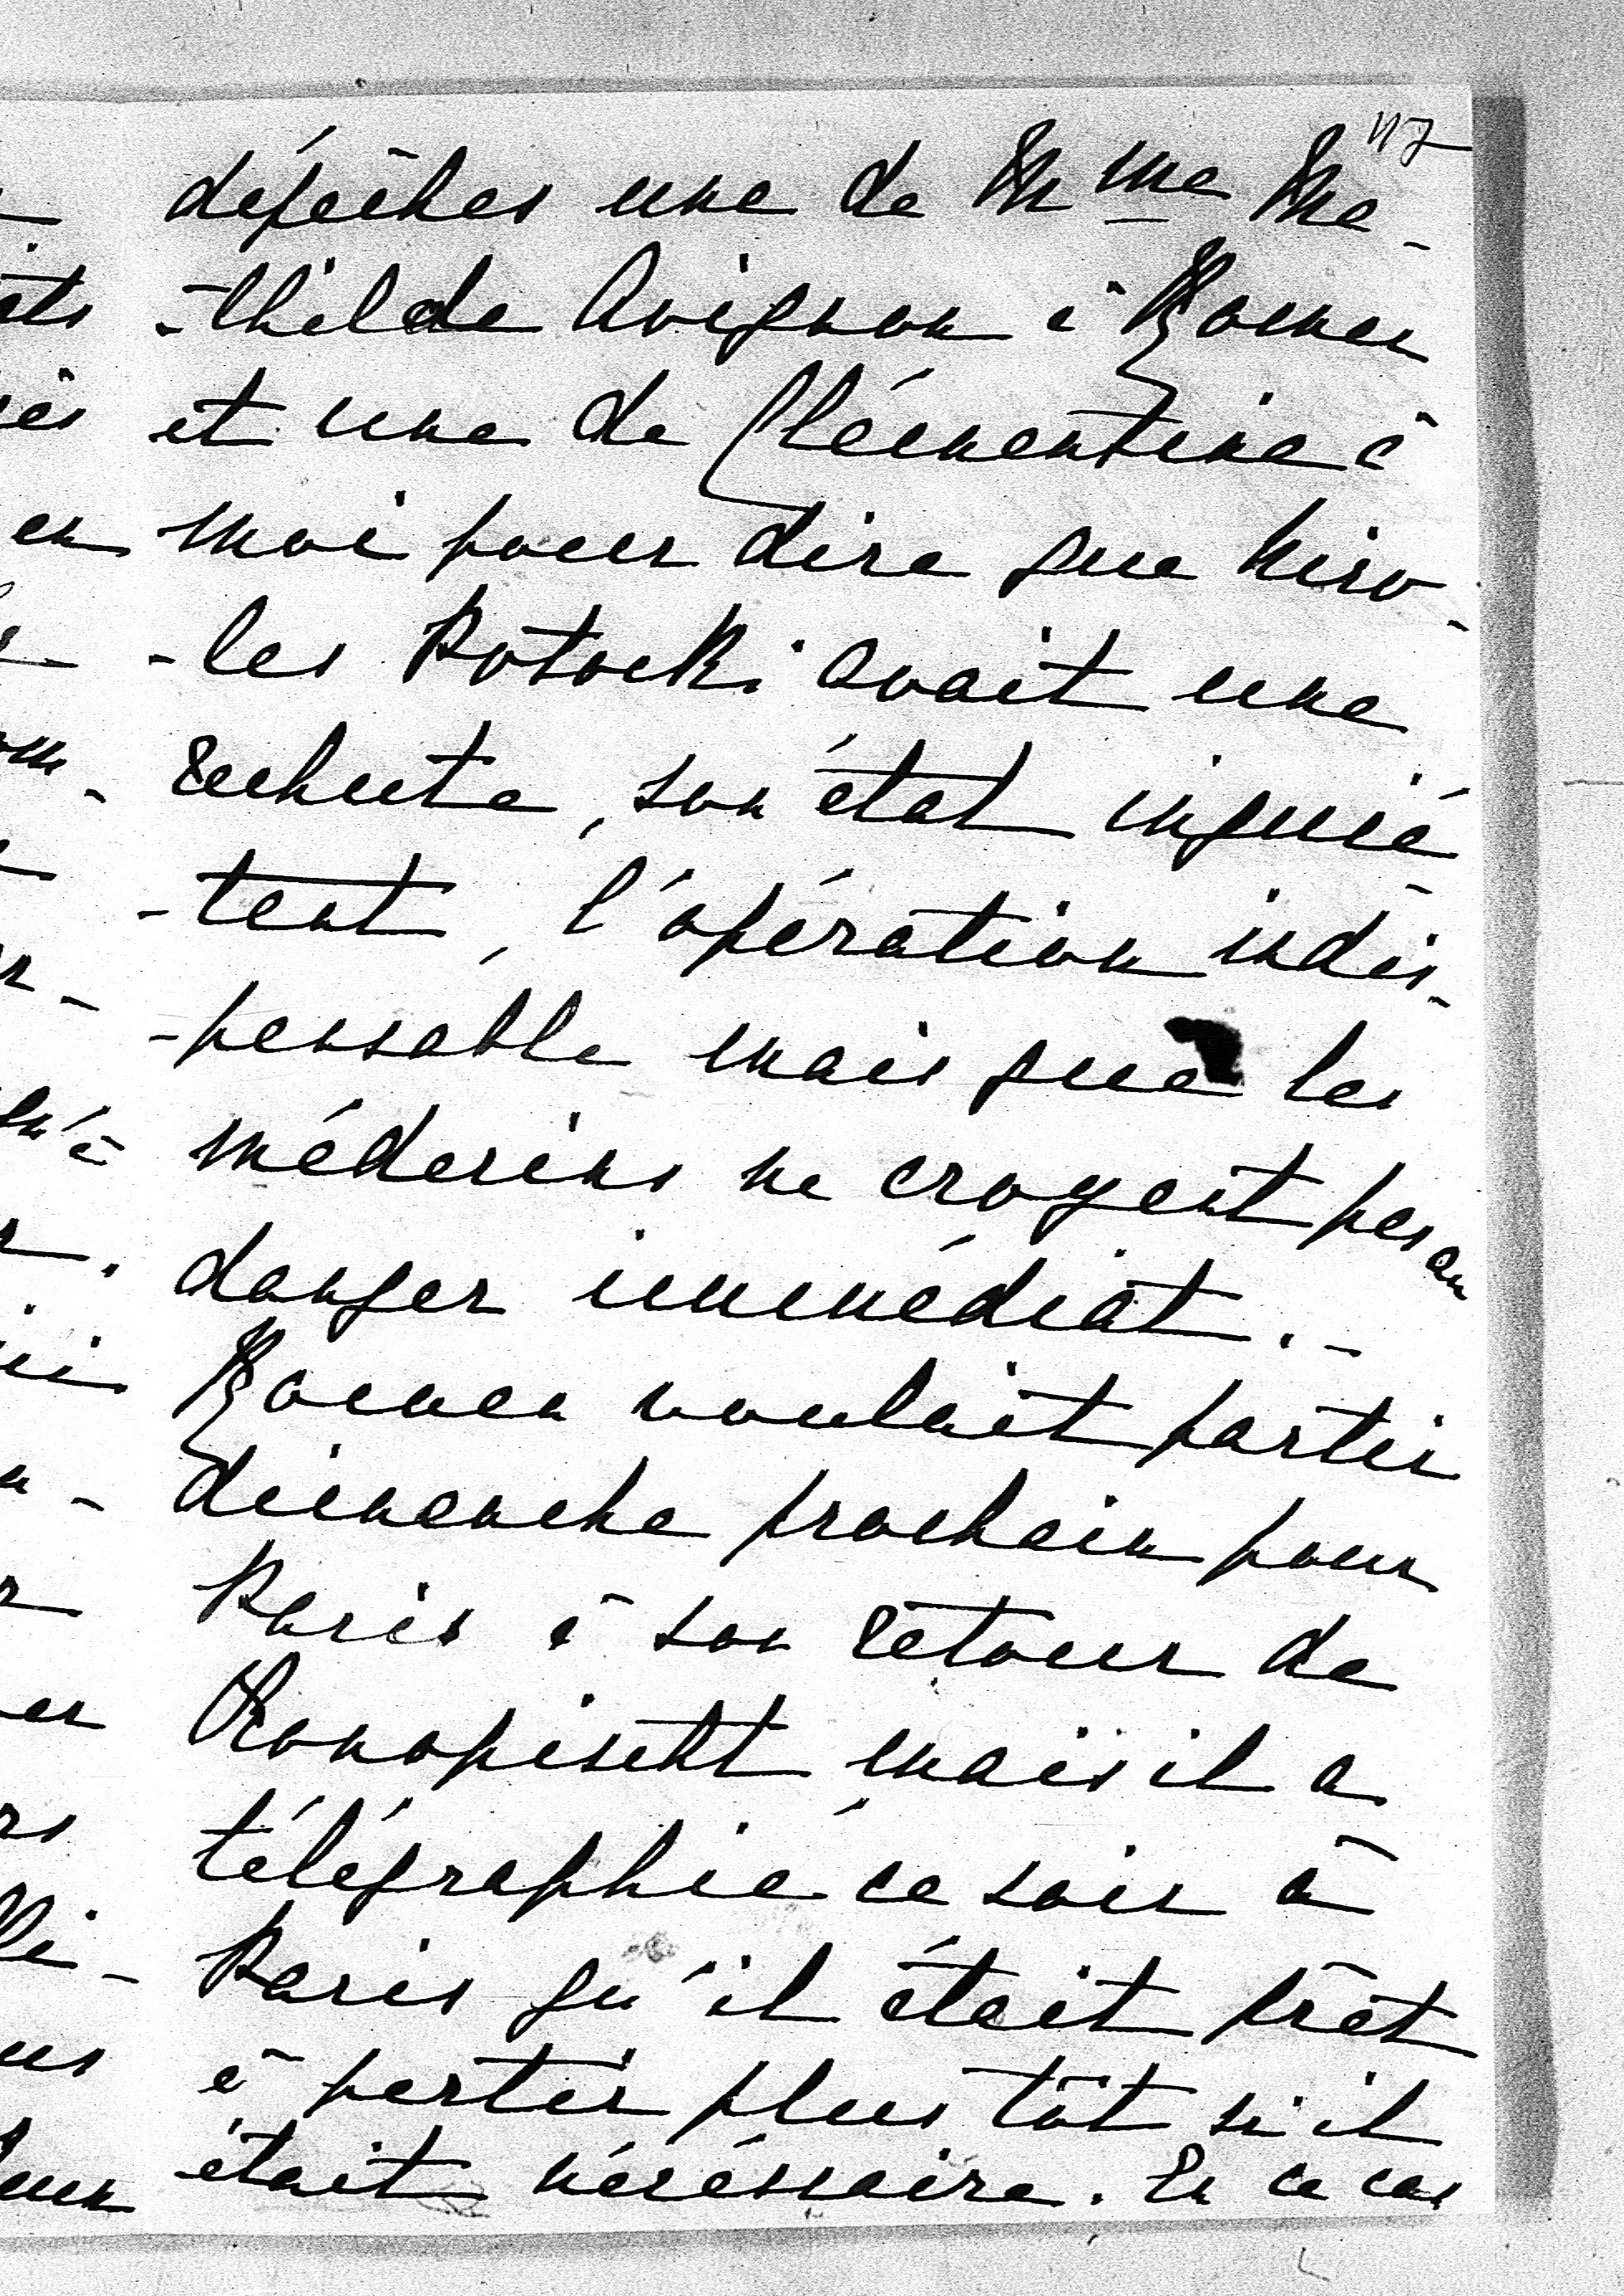 117
dépêches une de Mme Ma-
-thilde Avignon à Roman
et une de Clémentine à
moi pour dire que Nico-
-las Potocki avait une
rechute, son état inquié-
-tant, l'opération indis-
-pensable mais que les
médecins ne croyent pas au
danger immédiat. -
Roman voulait partir
dimanche prochain pour
Paris à son retour de
Konopischt mais il a
télégraphié ce soir à
Paris qu'il était prêt
à partir plus tôt si il
était nécéssaire. En ce cas